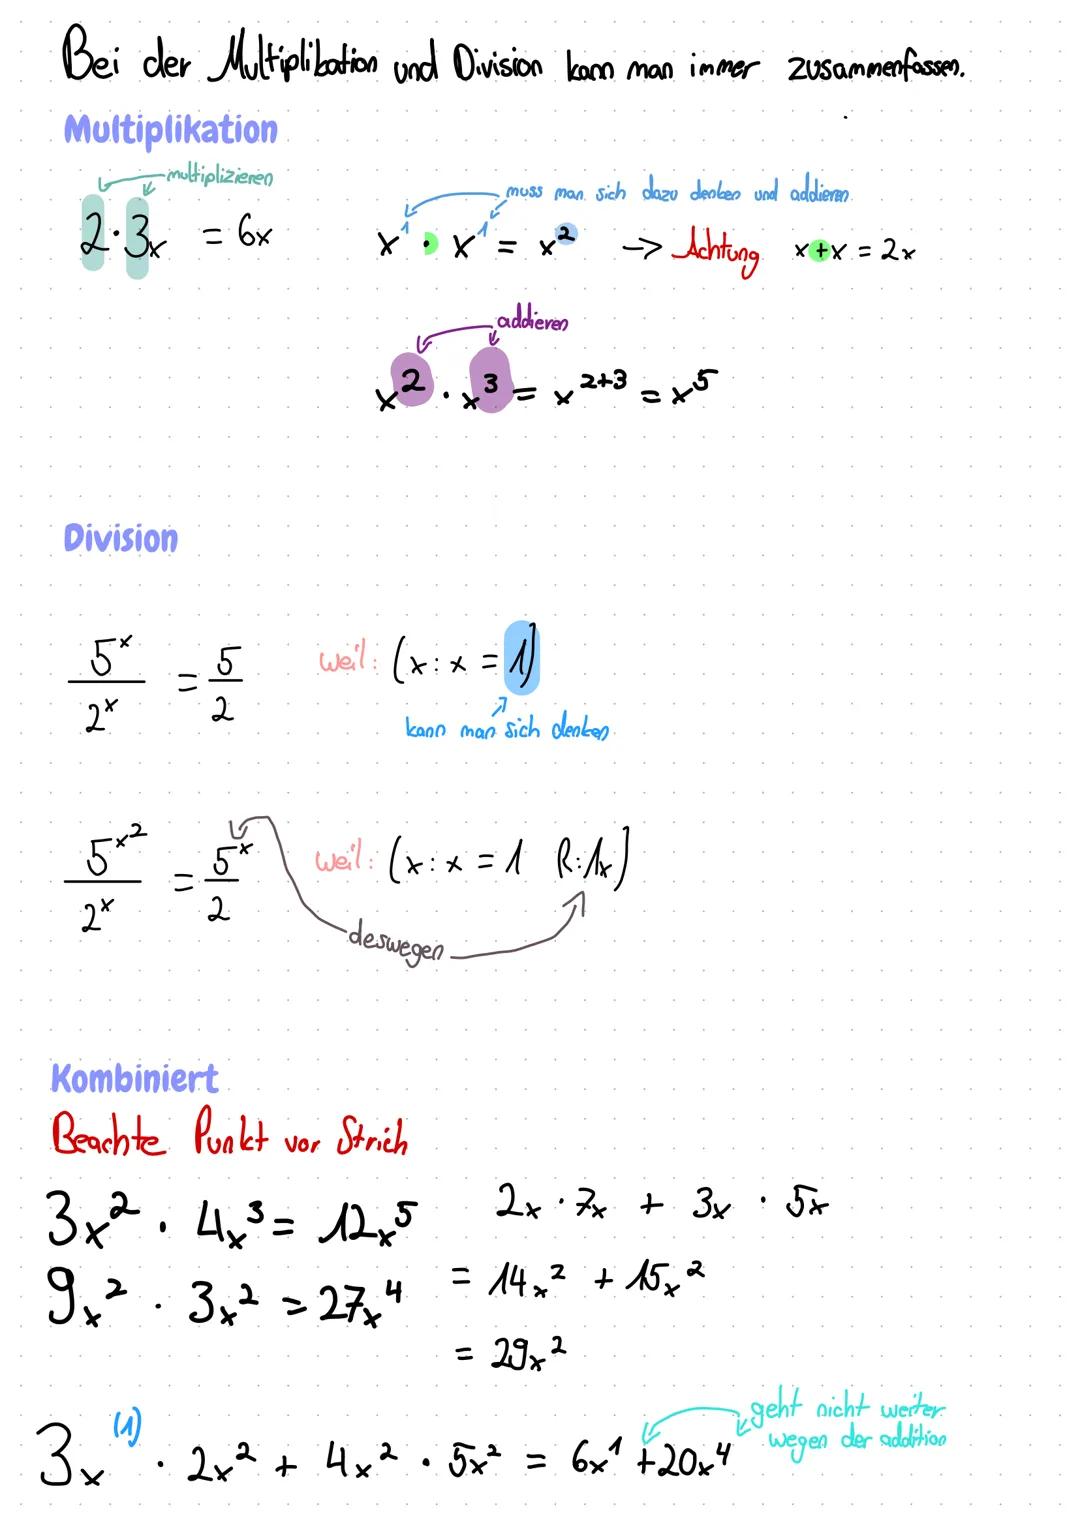 Bei der Multiplikation und Division kann man immer zusammenfassen.
Multiplikation
multiplizieren
2 · 3x = 6x
muss man sich dazu denken und addieren
x¹ · x¹ = x² → Achtung x + x = 2x
addieren
x² · x³ = x²⁺³ = x⁵
Division
5ˣ / 2ˣ = 5 / 2 weil: (x : x = 1)
kann man sich denken
5ˣ² / 2ˣ = 5ˣ / 2 weil: (x : x = 1 R: 1x)
deswegen
Kombiniert
Beachte Punkt vor Strich
3x² · 4x³ = 12x⁵
9x² · 3x² = 27x⁴
2x · 7x + 3x · 5x
= 14x² + 15x²
= 29x²
geht nicht weiter
wegen der addition
3x⁽¹⁾ · 2x² + 4x² · 5x² = 6x¹ + 20x⁴